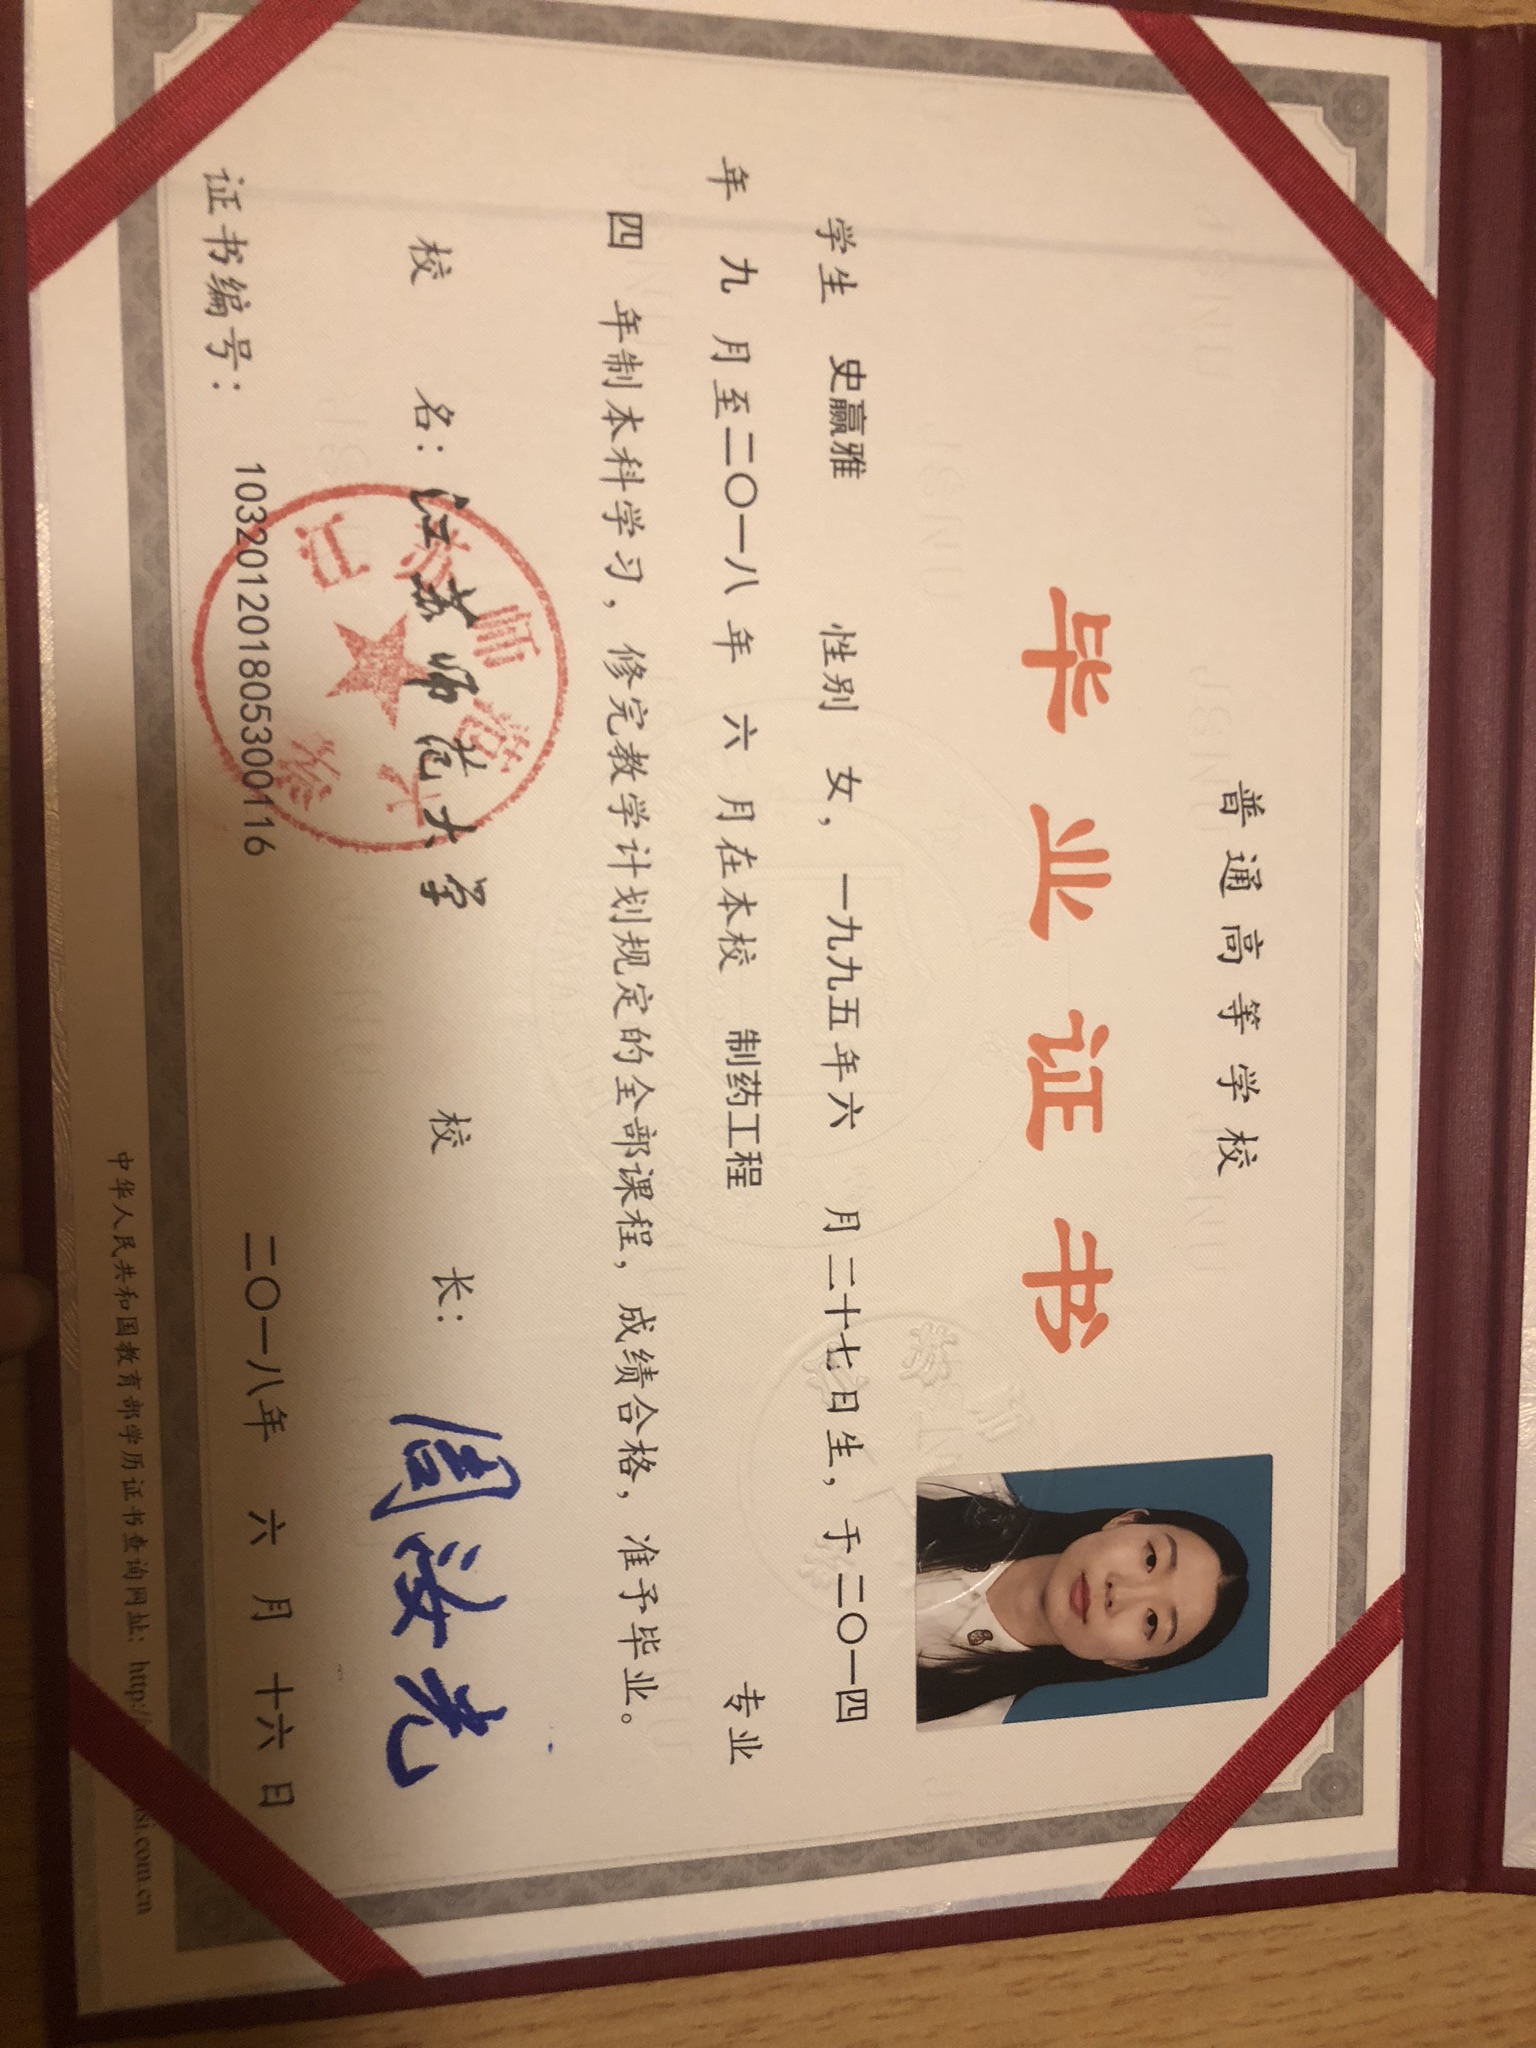 普通高等学校
毕业证书
学生 史赢雅 性别 女，一九九五年六 月二十七日生，于二〇一四
年 九 月至二〇一八 年 六 月在本校 制药工程 专业
四 年制本科学习，修完教学计划规定的全部课程，成绩合格，准予毕业。
校 名：江苏师范大学 校 长：
江苏师范大学
证书编号： 103201201805300116 二〇一八年 六 月 十六 日
中华人民共和国教育部学历证书查询网址：http://
si.com.cn